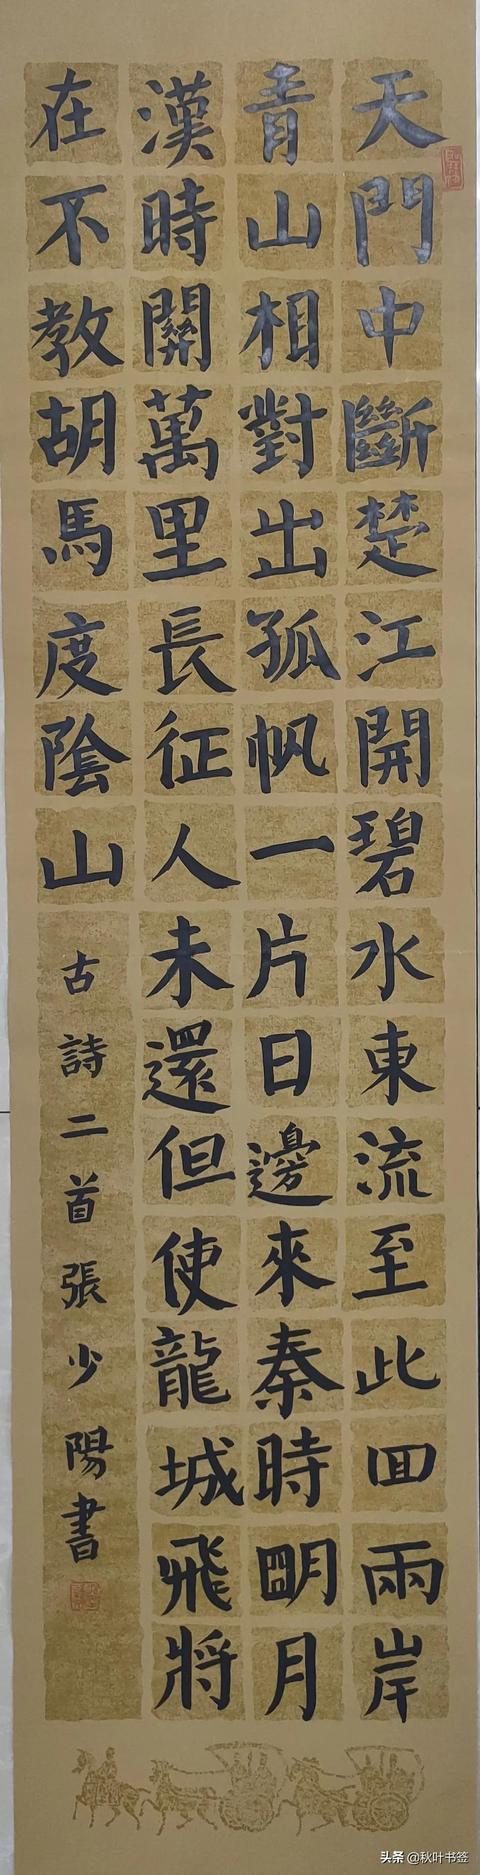 天門中斷楚江開碧水東流至此回兩岸
青山相對出孤帆一片日邊來秦時明月
漢時關萬里長征人未還但使龍城飛將
在不教胡馬度陰山
古詩二首張少陽書
头条 @秋叶书签